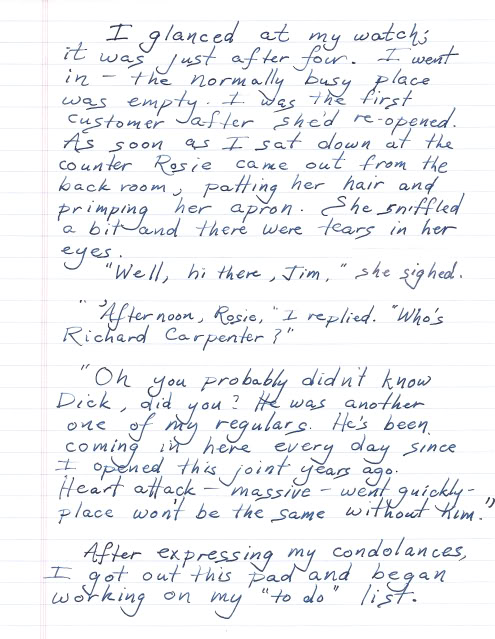 I glanced at my watch;
it was just after four. I went
in – the normally busy place
was empty. I was the first
customer after she'd re-opened.
As soon as I sat down at the
counter Rosie came out from the
back room, patting her hair and
primping her apron. She sniffled
a bit and there were tears in her
eyes.
"Well, hi there, Jim," she sighed.
"'Afternoon, Rosie," I replied. "Who's
Richard Carpenter?"
"Oh you probably didn't know
Dick, did you? He was another
one of my regulars. He's been
coming in here every day since
I opened this joint years ago.
Heart attack – massive – went quickly –
place won't be the same without him."
After expressing my condolances,
I got out this pad and began
working on my "to do" list.